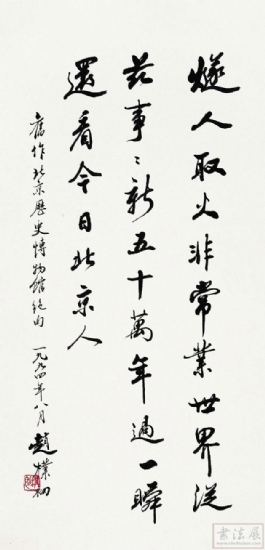 燧人取火非常業世界從
茲事〻新五十萬年過一瞬
還看今日北京人
舊作北京歷史博物館絕句
一九九四年八月 趙樸初
書法展